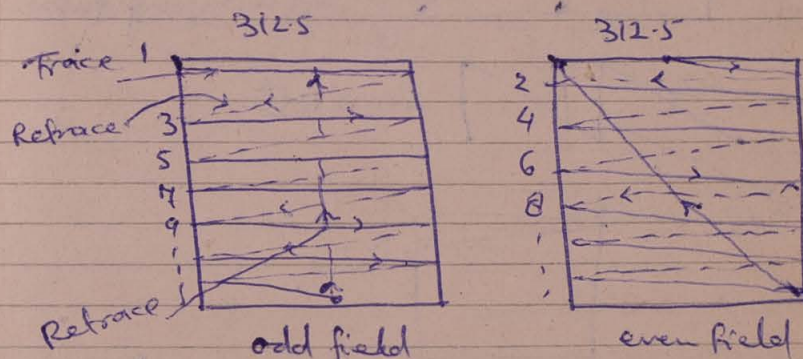 312.5
312.5
Trace 1
Retrace
3
5
7
9
Retrace
odd field
2
4
6
8
even field